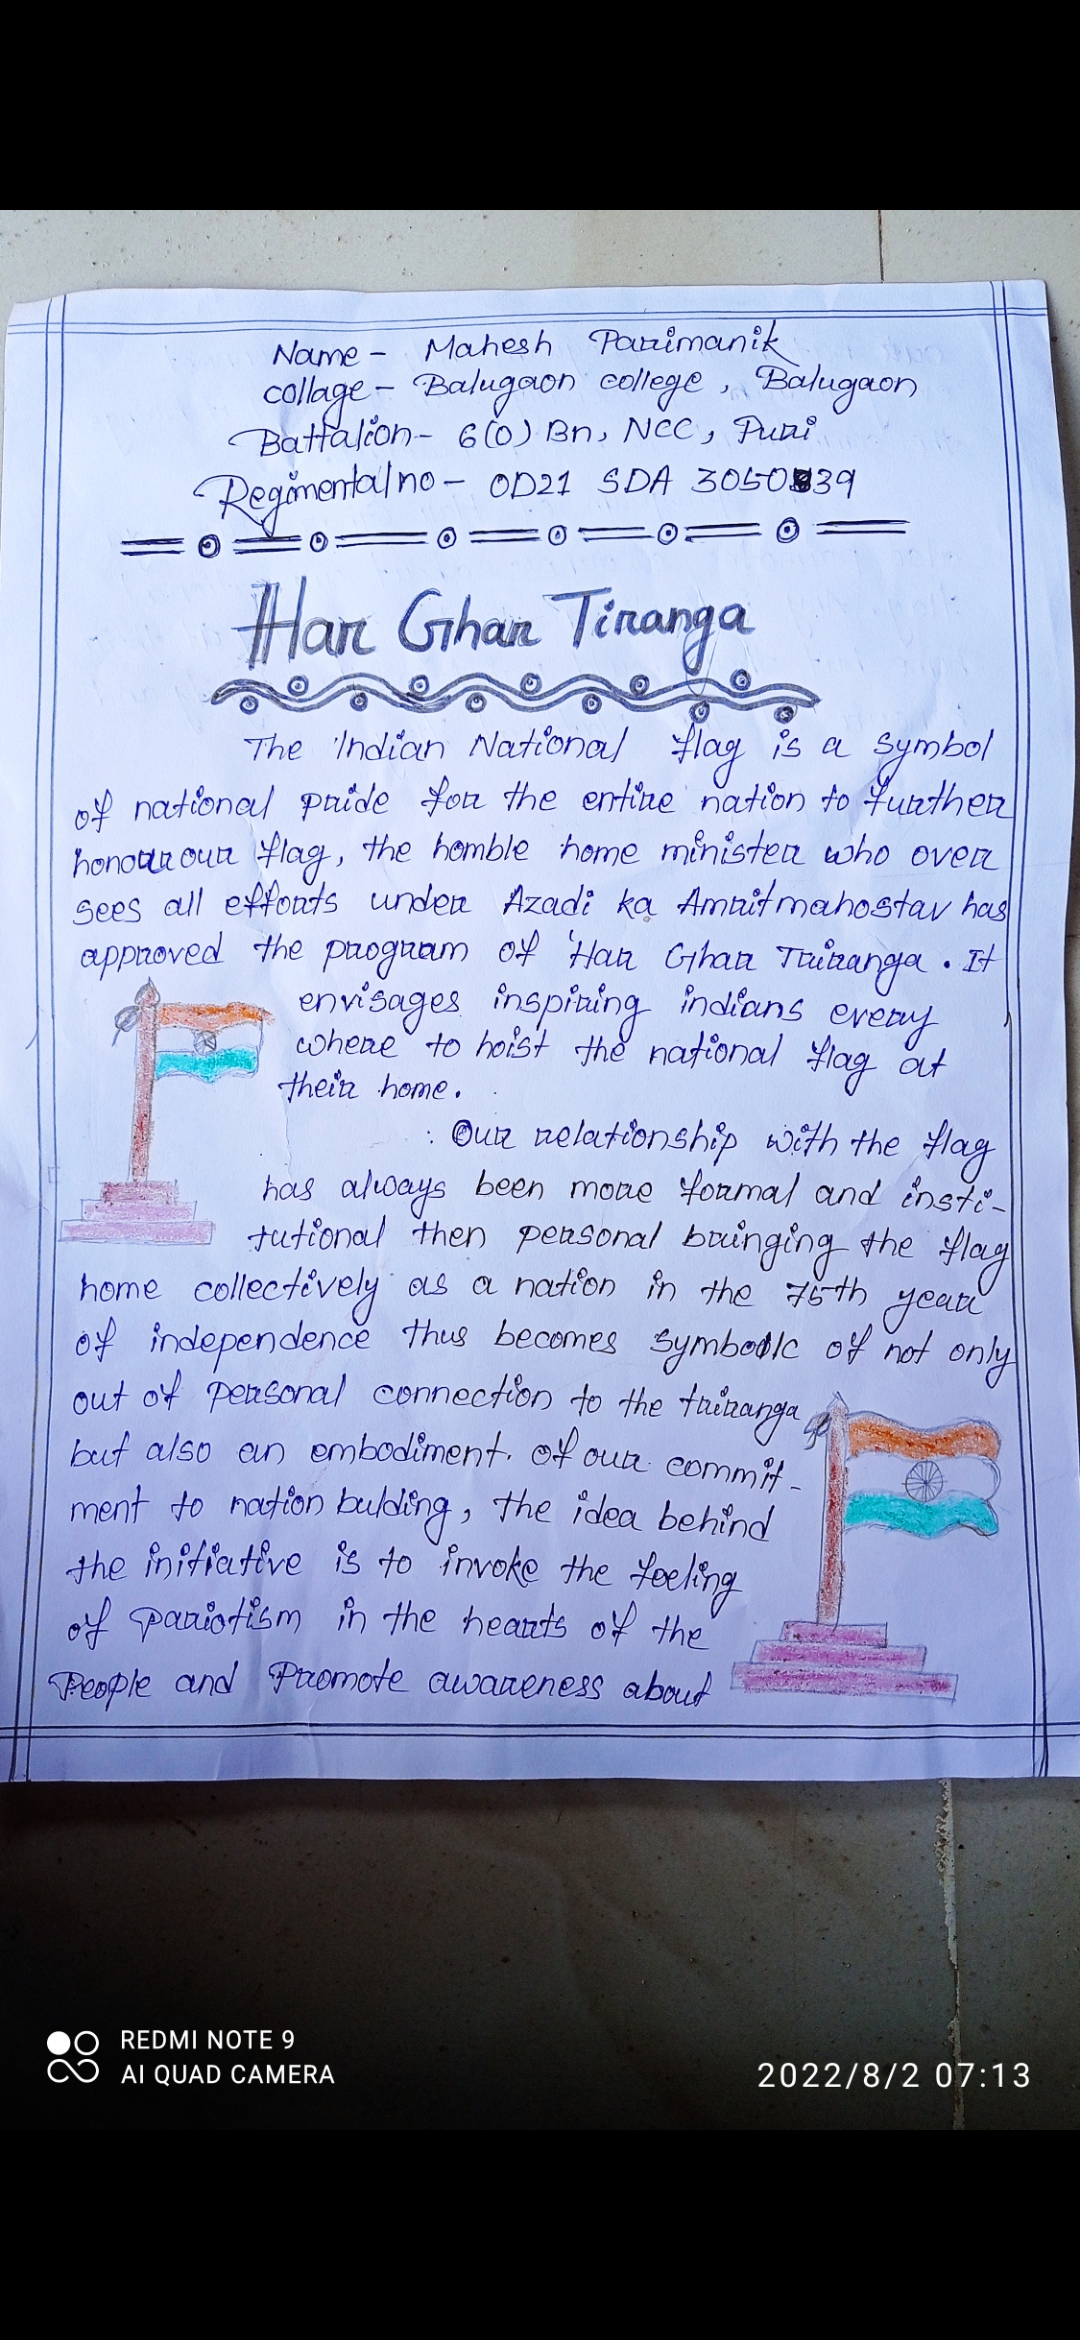 Name - Mahesh Parimanik
collage - Balugaon college, Balugaon
Battalion - 6(0) Bn, NCC, Puri
Regimental no - OD21 SDA 3050 39
Har Ghar Tiranga
The Indian National flag is a symbol
of national pride for the entire nation to further
honour our flag, the homble home minister who over
sees all efforts under Azadi ka Amrit mahostav has
approved the program of 'Har Ghar Triranga. It
envisages inspiring indians every
where to hoist the national flag at
their home.
Our relationship with the flag
has always been more formal and insti-
tutional then personal bringing the flag
home collectively as a nation in the 75th year
of independence thus becomes symbolc of not only
out of personal connection to the triranga
but also an embodiment. of our commit-
ment to nation bulding, the idea behind
the initiative is to invoke the feeling
of pariotism in the hearts of the
People and Promote awareness about
REDMI NOTE 9
AI QUAD CAMERA
2022/8/2 07:13